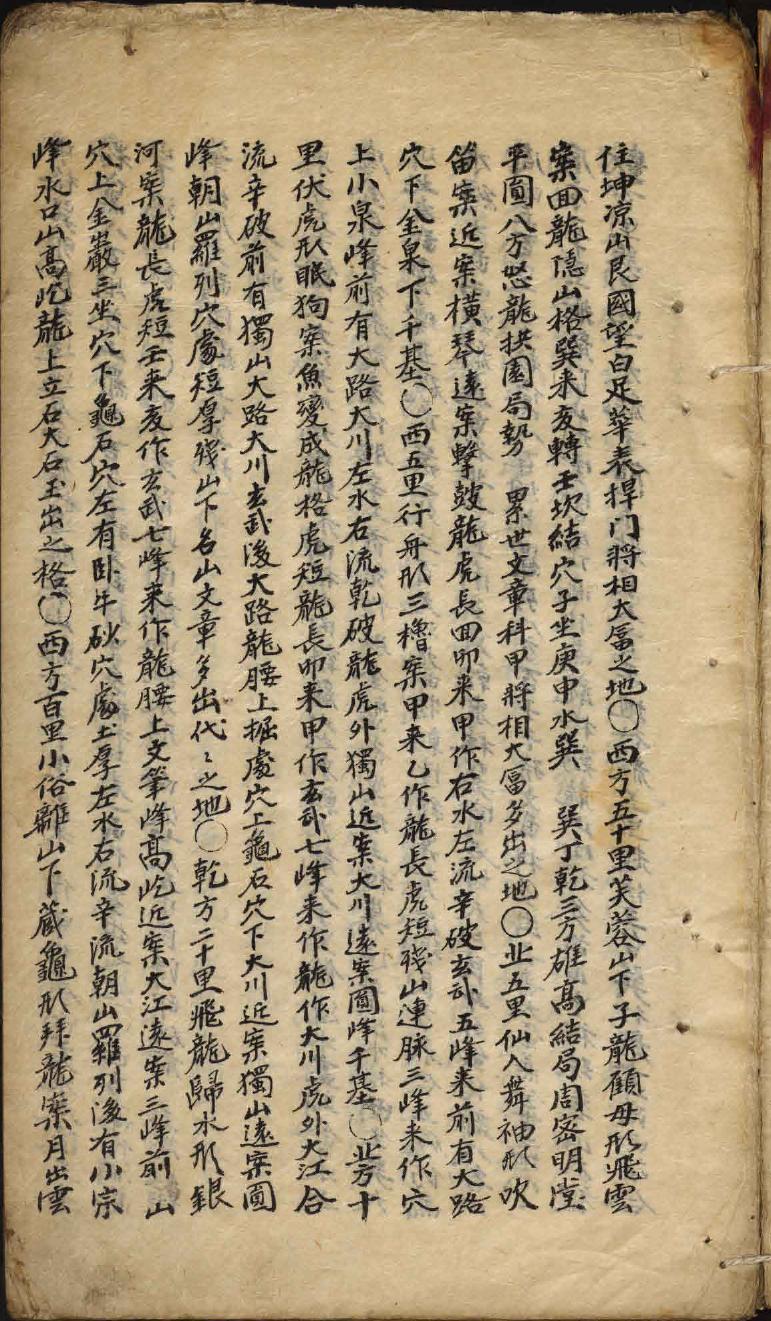 住坤凉山艮國望白足華表捍门將相大富之地〇西方五十里芙蓉山下子龍顧母形飛雲
案回龍隐山格巽来亥轉壬坎結穴子坐庚申水巽 巽丁乾三方雄高結局周密明堂
平圓八方怒龍拱園局勢 累世文章科甲將相大富多出之地〇北五里仙人舞袖形吹
笛案近案橫琴遠案擊鼓龍虎長回卯来甲作右水左流辛破玄武五峰来前有大路
穴下金泉下千基〇西五里行舟形三櫓案甲来乙作龍長虎短残山連脉三峰来作穴
上小泉峰前有大路大川左水右流乾破龍虎外獨山近案大川遠案圓峰千基〇北方十
里伏虎形眠狗案魚變成龍格虎短龍長卯来甲作玄武七峰来作龍作大川虎外大江合
流辛破前有獨山大路大川玄武後大路龍腰上掘處穴上龜石穴下大川近案獨山遠案圓
峰朝山羅列穴處短厚残山下名山文章多出代〻之地〇乾方二十里飛龍歸水形銀
河案龍長虎短壬来亥作玄武七峰来作龍腰上文筆峰高屹近案大江遠案三峰前山
穴上金巖三坐穴下龜石穴左有卧牛砂穴處土厚左水右流辛流朝山羅列後有小宗
峰水口山高屹龍上立石大石玉出之格〇西方百里小俗離山下蔵龜形拜龍案月出雲